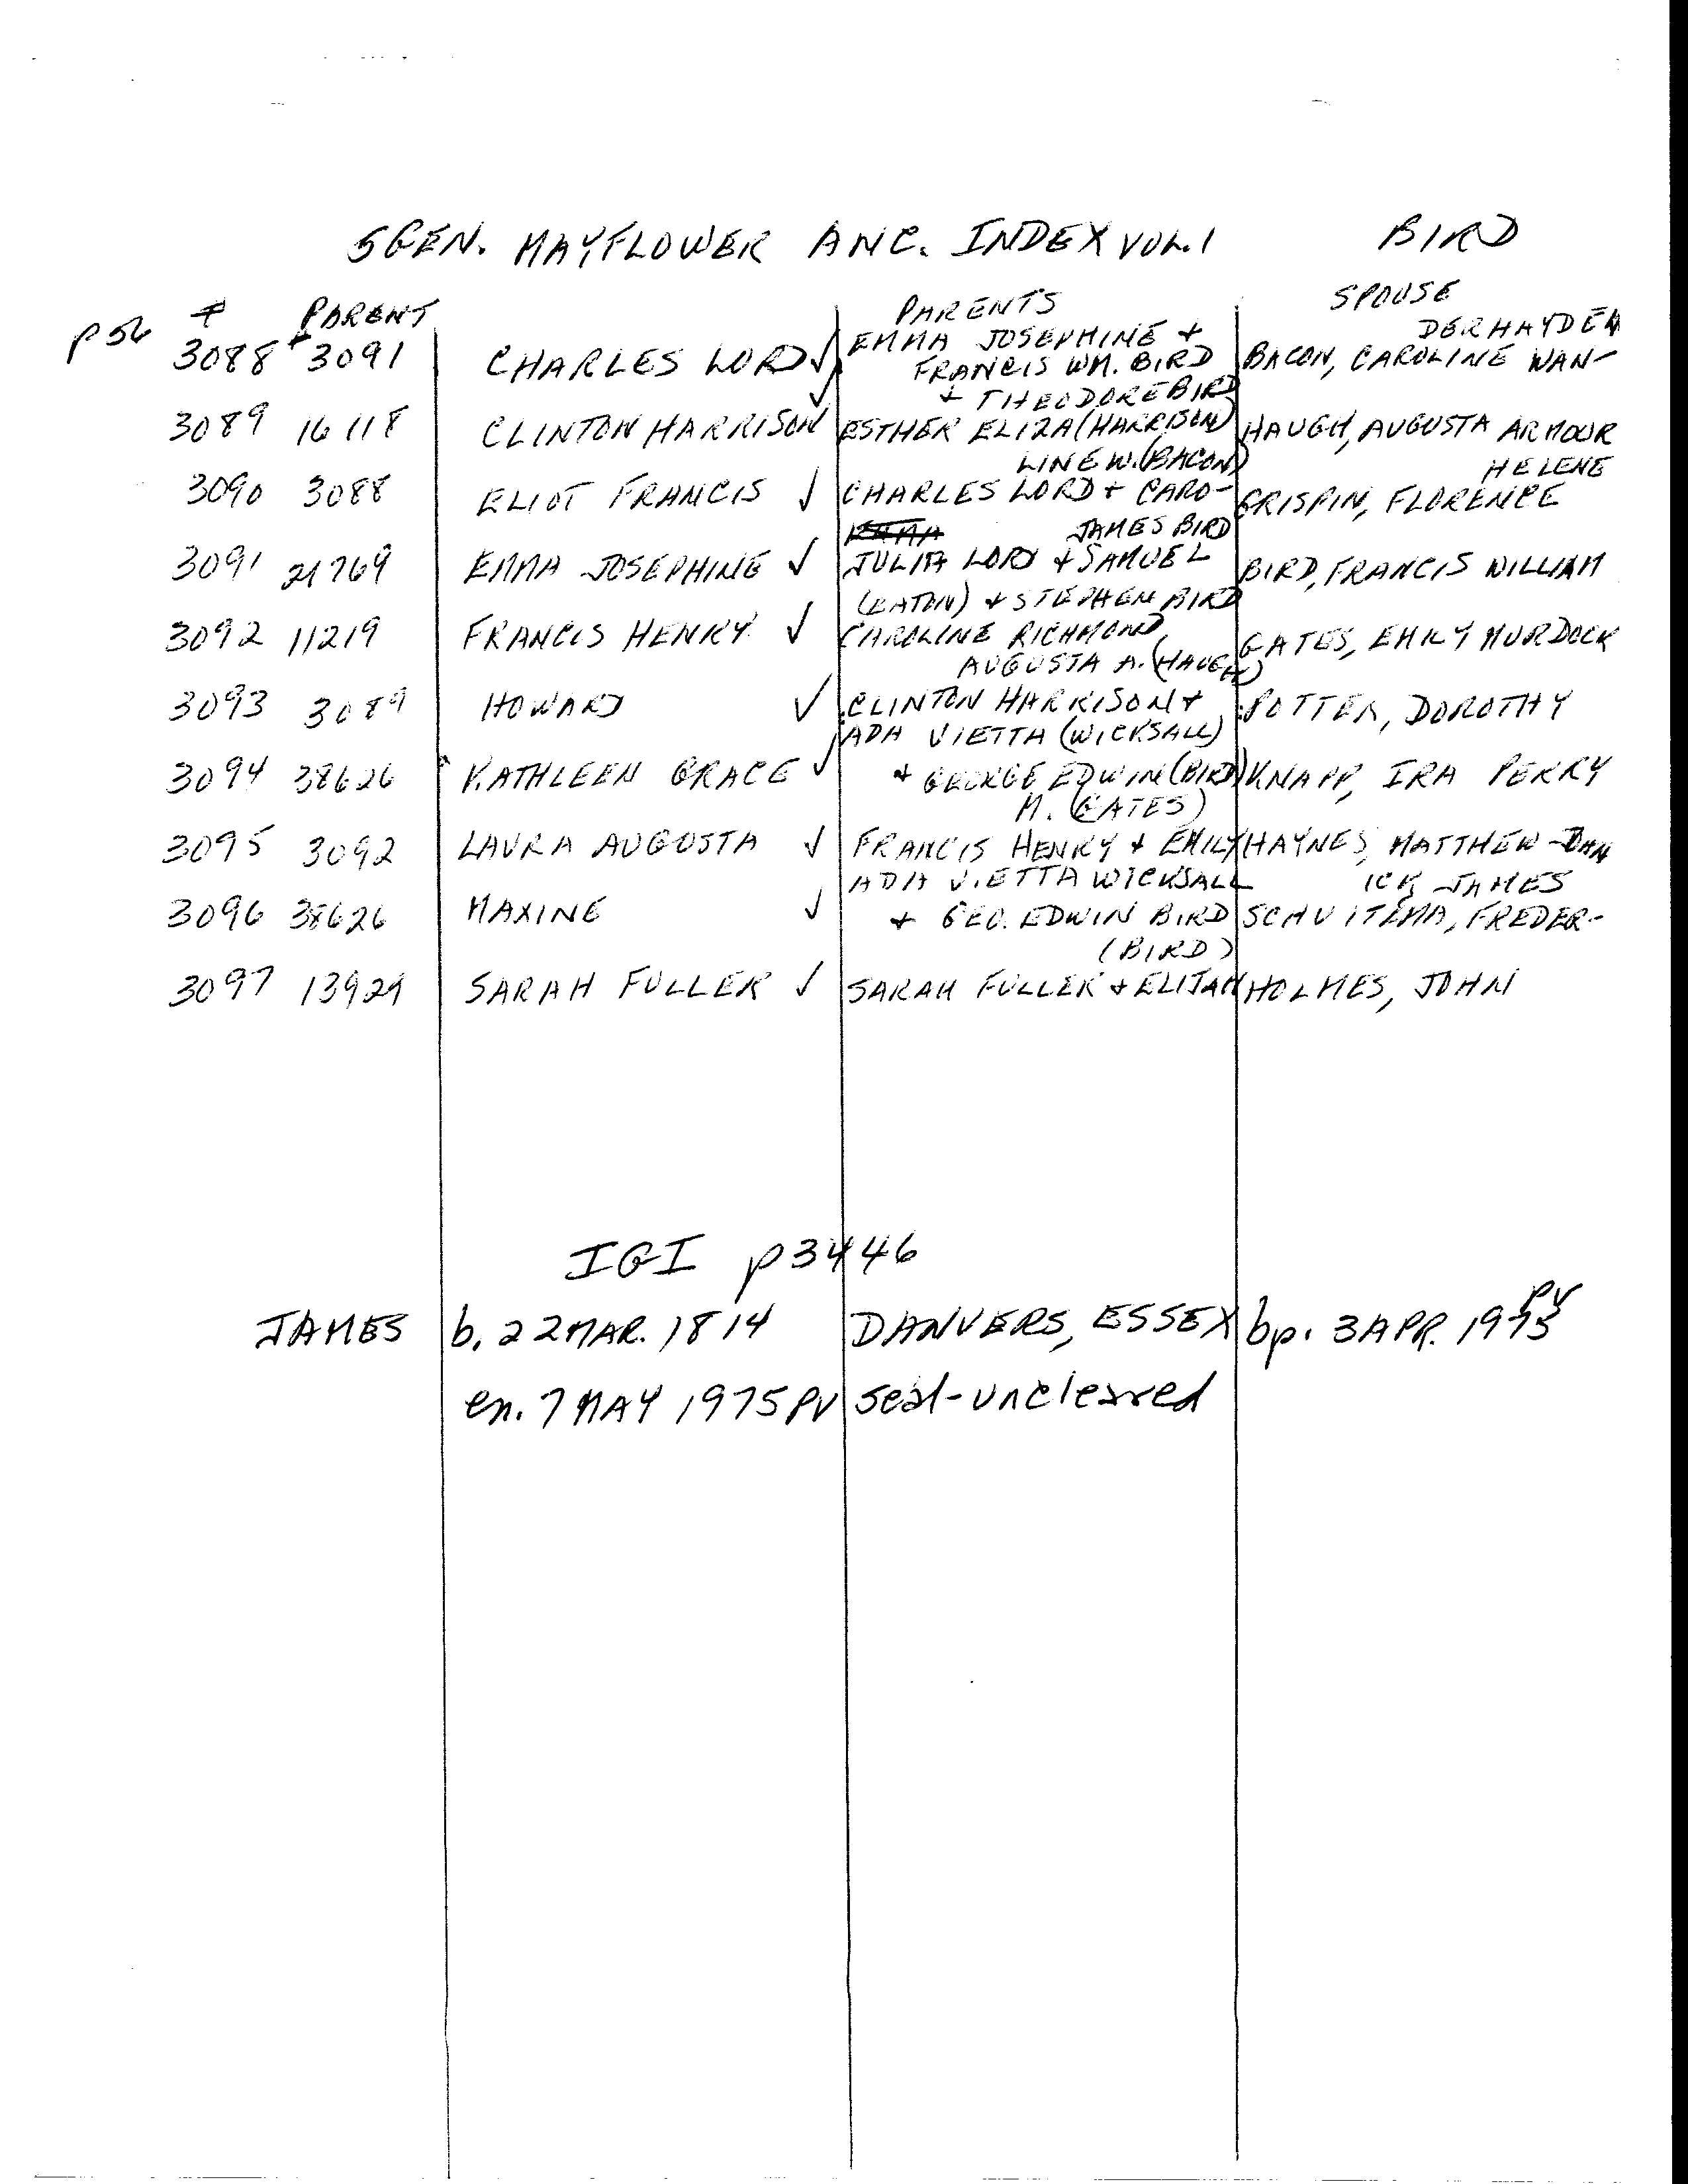 5GEN. MAYFLOWER ANC. INDEX VOL. 1 BIRD
p56 # PARENT # PARENTS SPOUSE
EMMA JOSEPHINE + DERHAYDEN
3088 3091 CHARLES LORD ✓ FRANCIS WM. BIRD BACON, CAROLINE WAN-
+ THEODORE BIRD
3089 16118 CLINTON HARRISON ✓ ESTHER ELIZA (HARRISON) HAUGH, AUGUSTA ARMOUR
LINE W. (BACON) HELENE
3090 3088 ELIOT FRANCIS ✓ CHARLES LORD + CARO- CRISPIN, FLORENCE
JAMES BIRD
3091 21769 EMMA JOSEPHINE ✓ JULIA LORD + SAMUEL BIRD, FRANCIS WILLIAM
(EATON) + STEPHEN BIRD
3092 11219 FRANCIS HENRY ✓ CAROLINE RICHMOND GATES, EMILY MURDOCK
AUGUSTA A. (HAUGH)
3093 3089 HOWARD ✓ CLINTON HARRISON + POTTER, DOROTHY
ADA VIETTA (WICKSALL)
3094 38626 KATHLEEN GRACE ✓ + GEORGE EDWIN (BIRD) KNAPP, IRA PERRY
M. (GATES)
3095 3092 LAURA AUGUSTA ✓ FRANCIS HENRY + EMILY HAYNES, MATTHEW
ADA VIETTA WICKSALL ICK JAMES
3096 38626 MAXINE ✓ + GEO. EDWIN BIRD SCHUITEMA, FREDER-
(BIRD)
3097 13929 SARAH FULLER ✓ SARAH FULLER + ELIJAH HOLMES, JOHN
IGI p3446
JAMES b. 22 MAR. 1814 DANVERS, ESSEX bp. 3 APR. 1975 PV
en. 7 MAY 1975 PV seal-uncleared